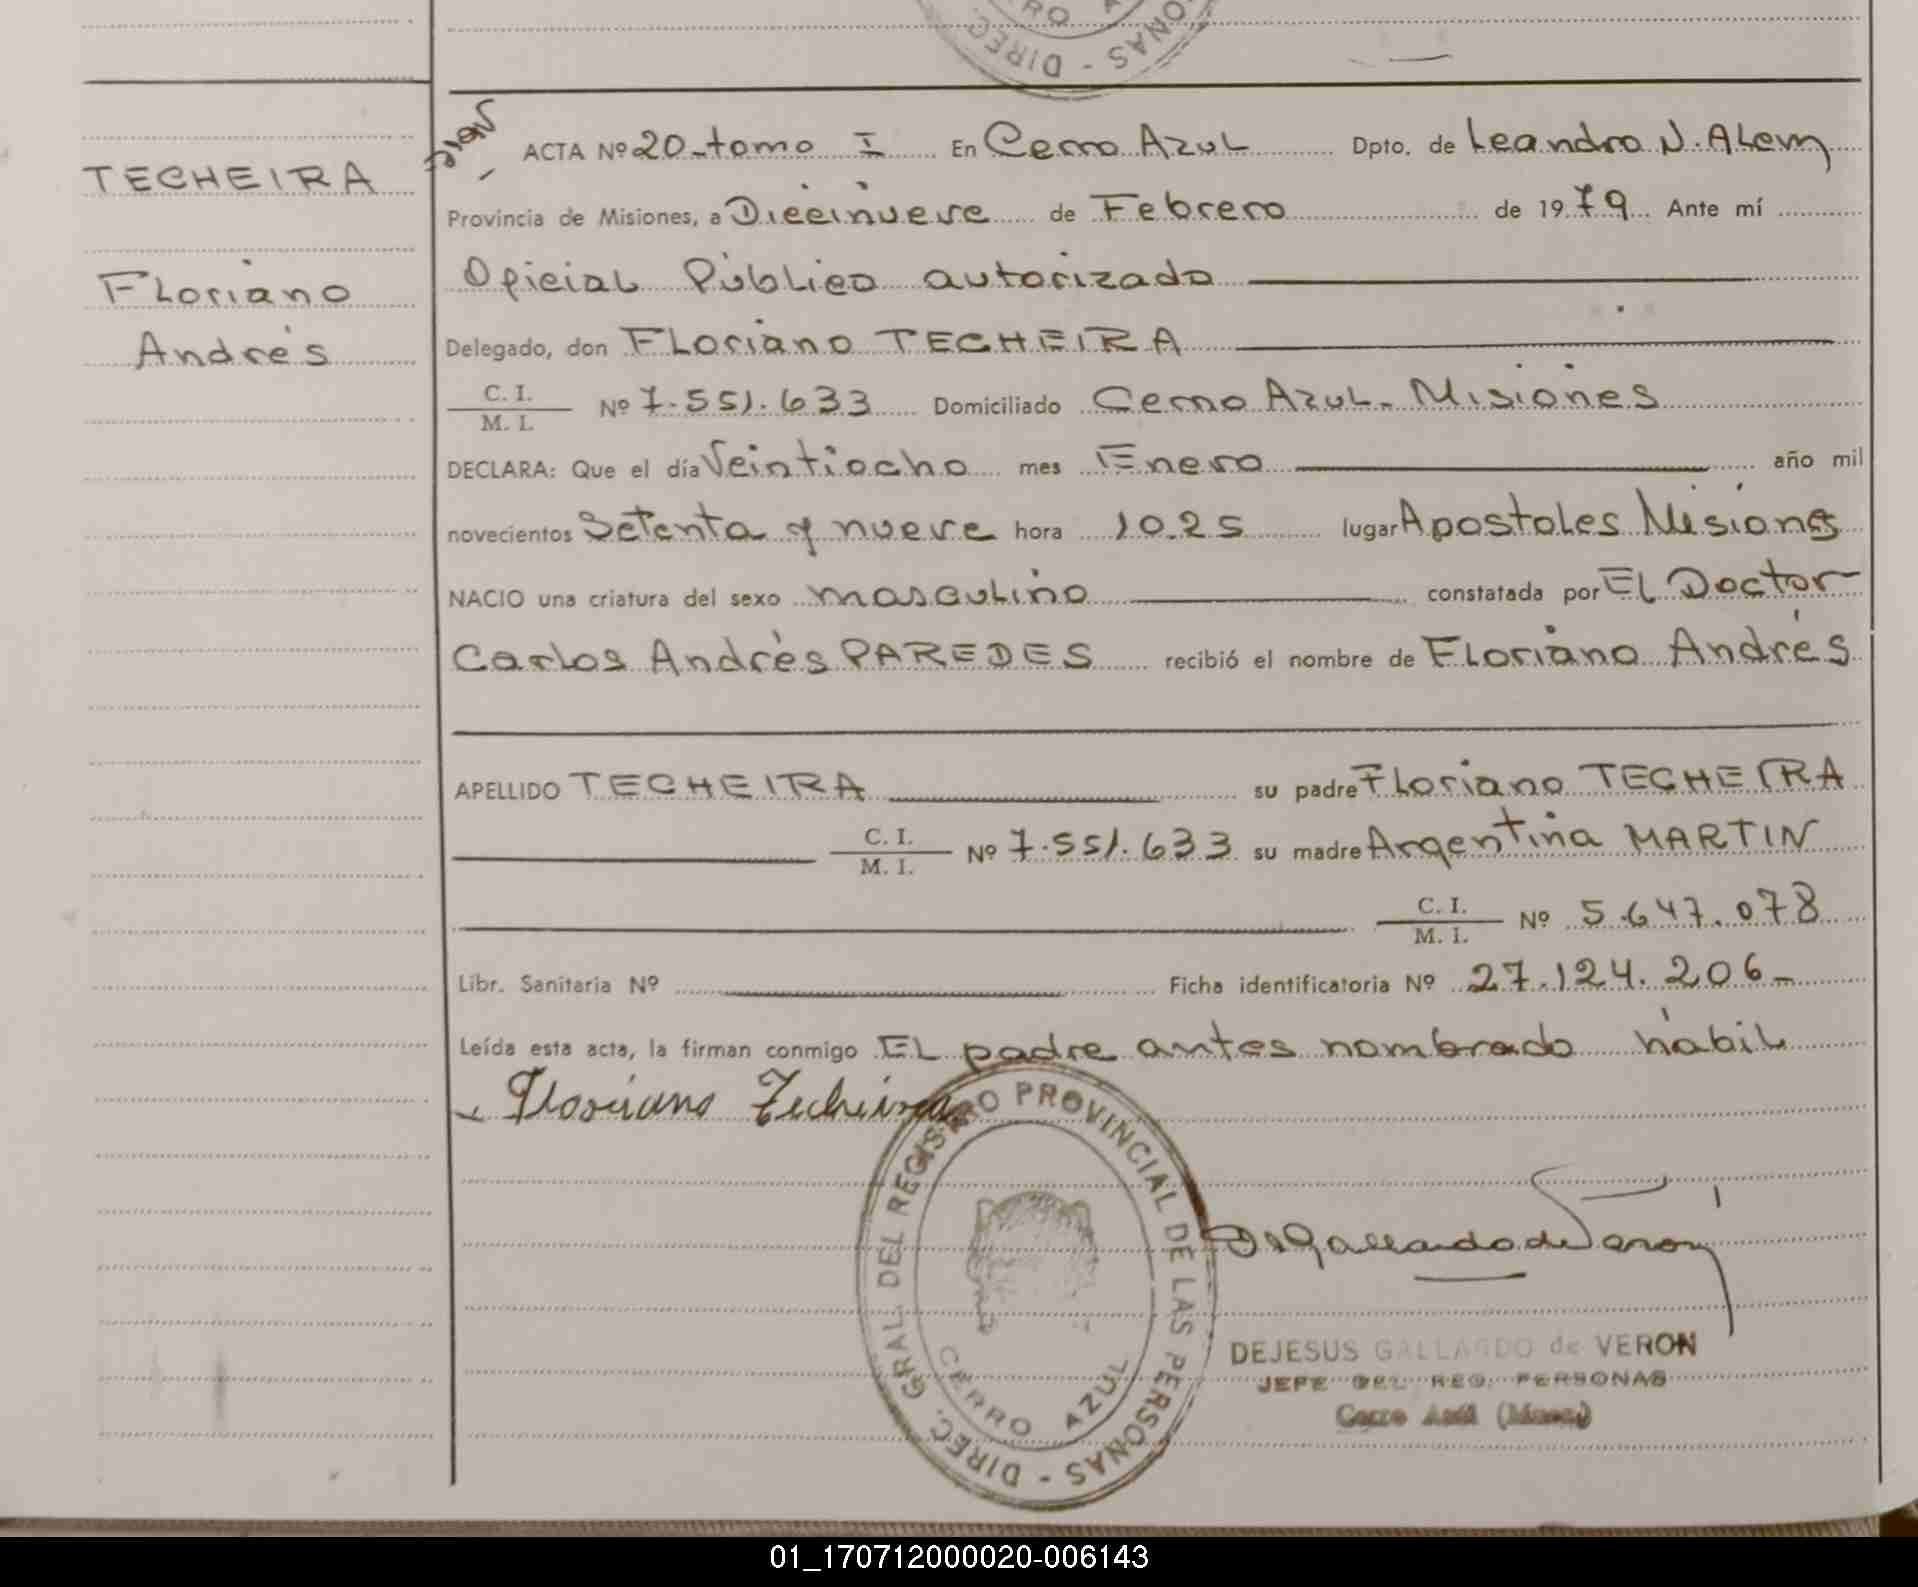 TECHEIRA
Floriano
Andrés
ACTA Nº 20-tomo I En Cerro Azul Dpto. de Leandro N. Alem
Provincia de Misiones, a Diecinueve de Febrero de 1979 Ante mí
Oficial Público autorizado
Delegado, don Floriano TECHEIRA
C. I.
M. I. Nº 7.551.633 Domiciliado Cerro Azul-Misiones
DECLARA: Que el día Veintiocho mes Enero año mil
novecientos Setenta y nueve hora 10.25 lugar Apostoles Misiones
NACIO una criatura del sexo masculino constatada por El Doctor
Carlos Andrés PAREDES recibió el nombre de Floriano Andrés
APELLIDO TECHEIRA su padre Floriano TECHEIRA
C. I.
M. I. Nº 7.551.633 su madre Argentina MARTIN
C. I.
M. I. Nº 5.647.078
Libr. Sanitaria Nº Ficha identificatoria Nº 27.124.206-
Leída esta acta, la firman conmigo El padre antes nombrado hábil
Floriano Techeira
DIREC. GRAL. DEL REGISTRO PROVINCIAL DE LAS PERSONAS -
CERRO AZUL
D. Gallardo de Veron
DEJESUS GALLARDO de VERON
JEFE DEL REG. PERSONAS
Cerro Azul (Mnes)
01_170712000020-006143